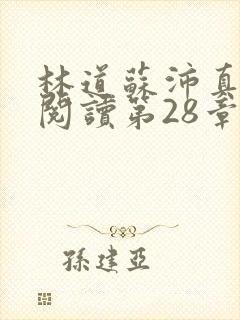 林道蘇沛真
閱讀第28章
孫建亞